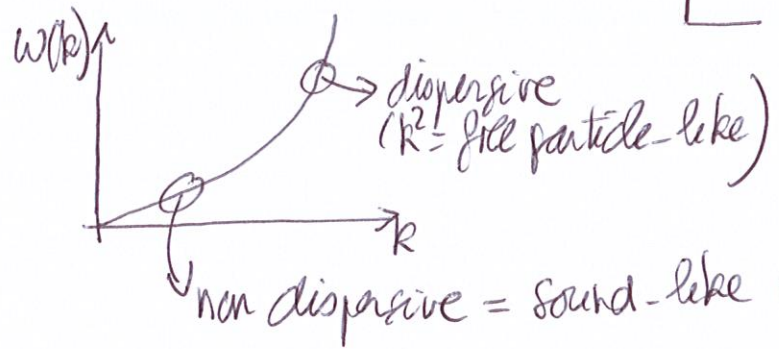 ω(k)
dispersive
(k² = free particle-like)
k
non dispersive = sound-like